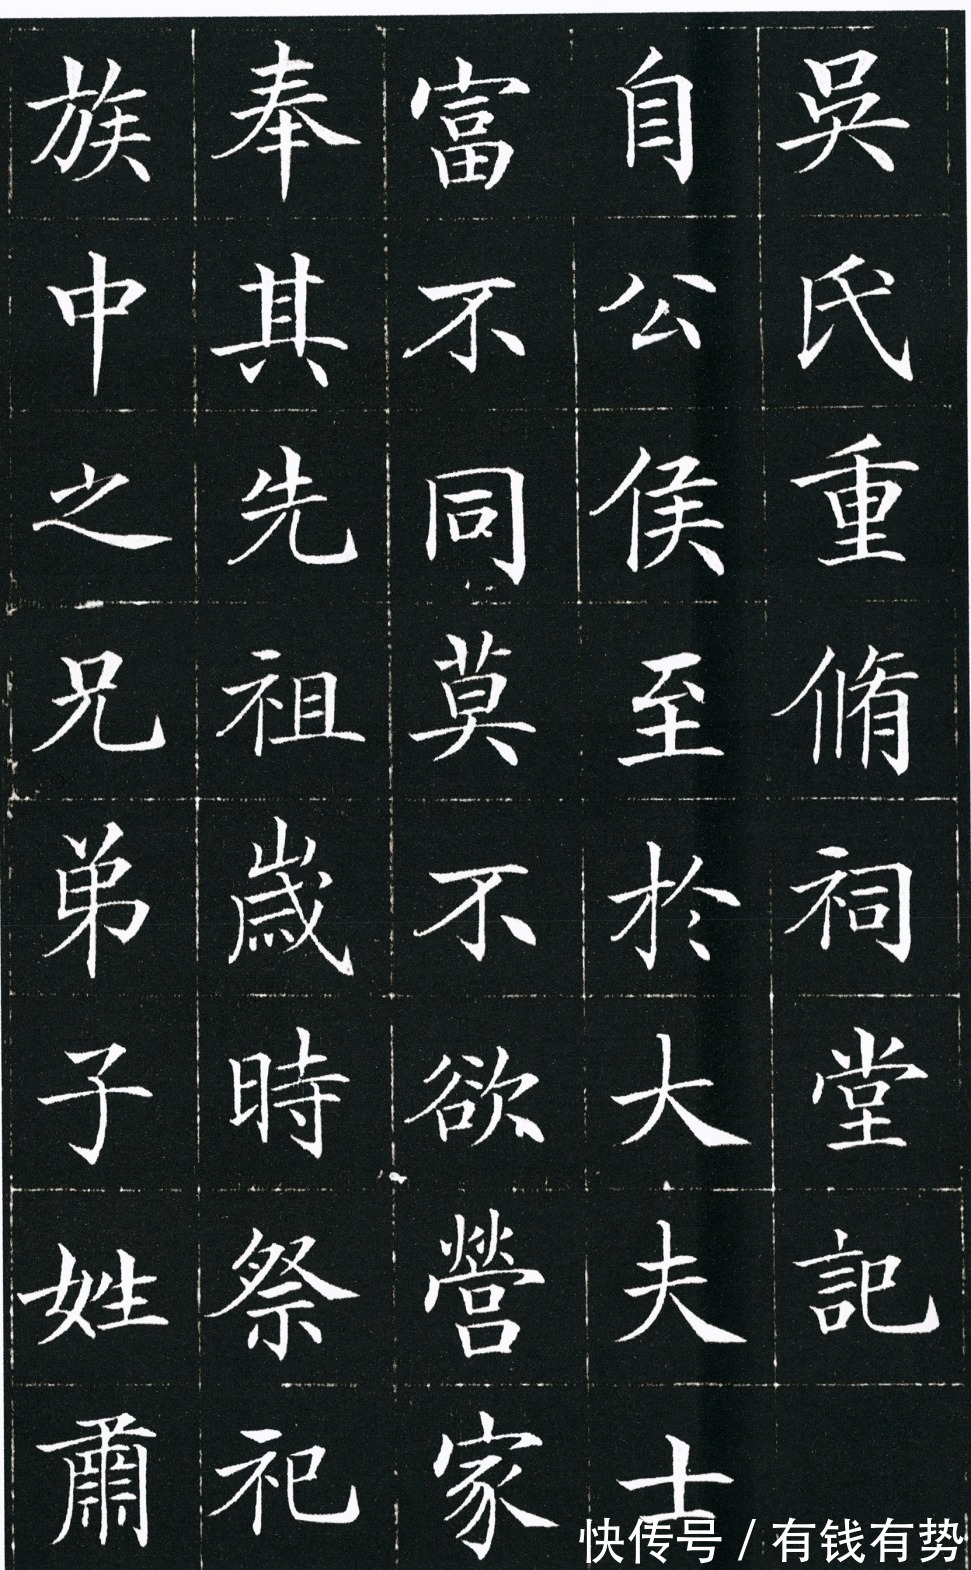 吳氏重脩祠堂記
自公侯至於大夫士
富不同莫不欲營家
奉其先祖歲時祭祀
族中之兄弟子姓肅
快传号 / 有钱有势